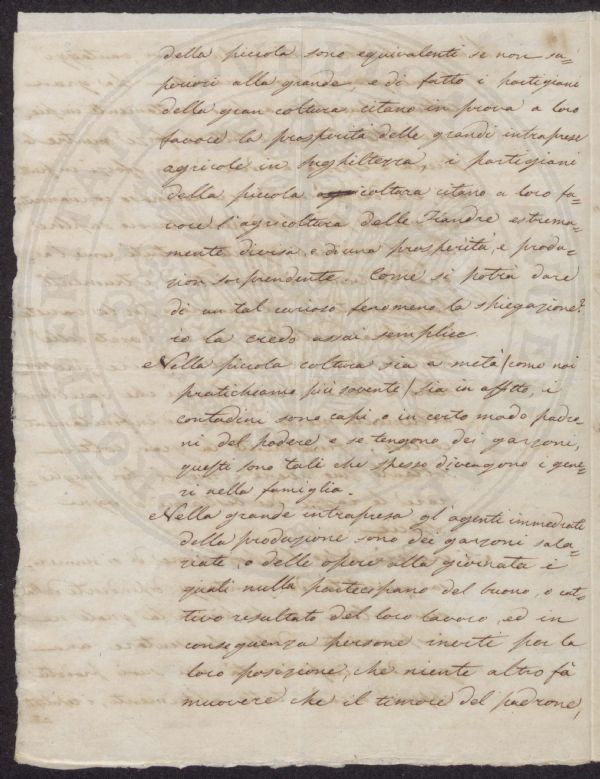 della piccola sono equivalenti se non su=
periori alla grande, e di fatto i partigiani
della gran coltura citano in prova a loro
favore la prosperità delle grandi intraprese
agricole in Inghilterra, i partigiani
della piccola coltura citano a loro fa=
vore l'agricoltura delle Fiandre estrema=
mente divisa, e di una prosperità, e produ=
zion sorprendente. Come si potrà dare
di un tal curioso fenomeno la spiegazione?
io la credo assai semplice.
Nella piccola coltura sia a metà/come noi
pratichiamo più sovente/sia in affitto, i
contadini sono capi, o in certo modo padro=
ni del podere e se tengono dei garzoni,
questi sono tali che spesso divengono i gene=
ri nella famiglia.
Nella grande intrapresa gl'agenti immediati
della produzione sono dei garzoni sala=
riati, o delle opere alla giornata i
quali nulla partecipano del buono, o cat=
tivo resultato del loro lavoro, ed in
conseguenza persone inerti per la
loro posizione, che niente altro fà
muovere che il timore del padrone,